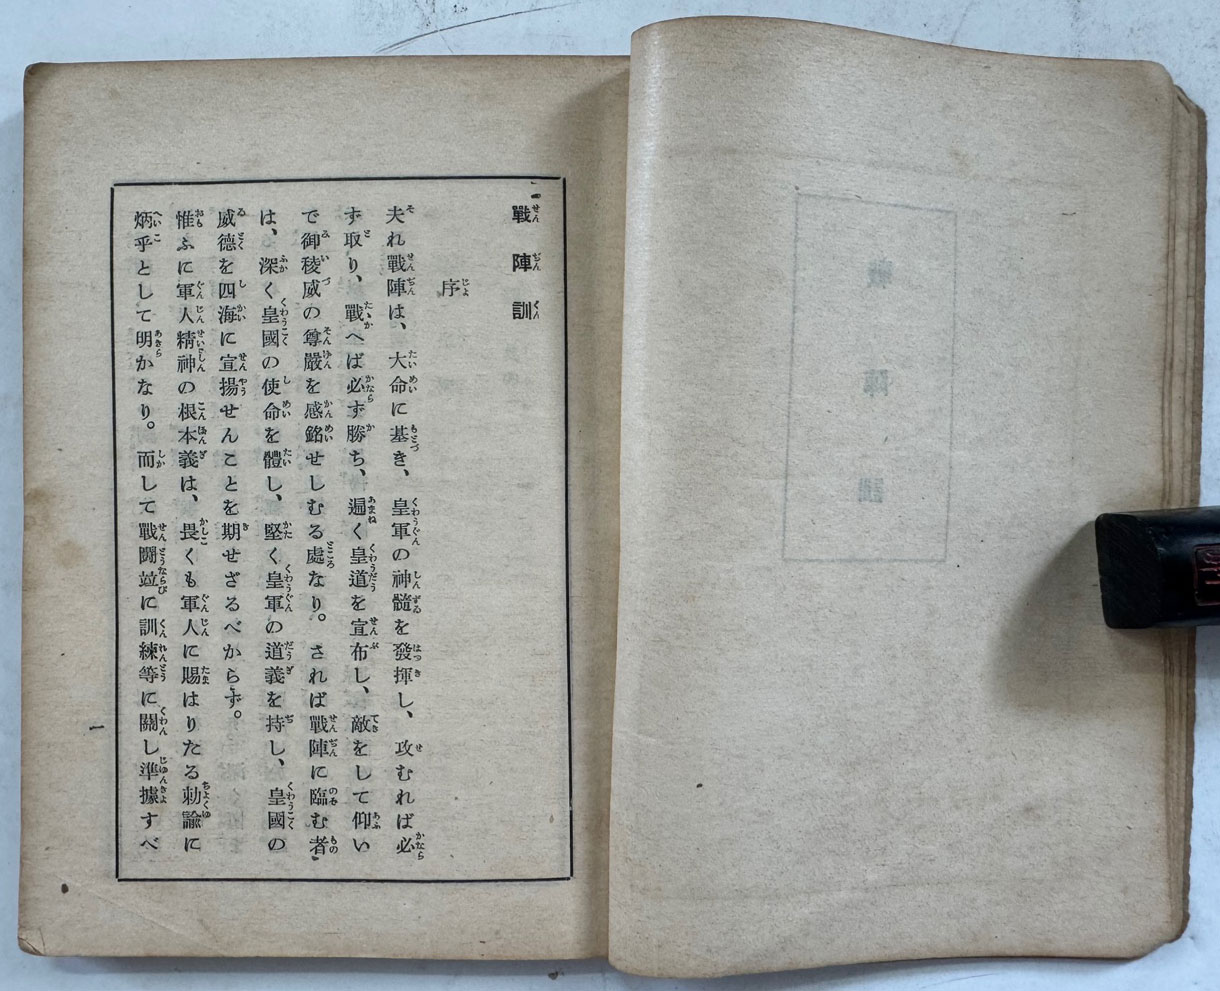 戰陣訓
序
夫れ戰陣は、大命に基き、皇軍の神髓を發揮し、攻むれば必
ず取り、戰へば必ず勝ち、遍く皇道を宣布し、敵をして仰い
で御稜威の尊嚴を感銘せしむる處なり。されば戰陣に臨む者
は、深く皇國の使命を體し、堅く皇軍の道義を持し、皇國の
威德を四海に宣揚せんことを期せざるべからず。
惟ふに軍人精神の根本義は、畏くも軍人に賜はりたる勅諭に
炳乎として明かなり。而して戰鬪竝に訓練等に關し準據すべ
一